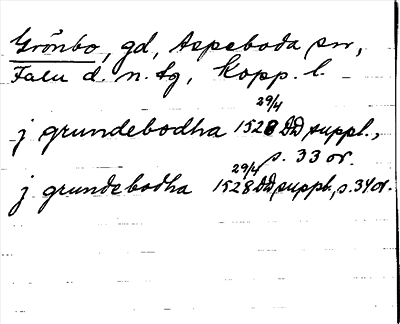 Grönbo, gd, Aspeboda sn,
Falu d. n. tg, Kopp. l.
29/4
j grundebodha 1528 DD, suppl.,
s. 33 or.
29/4
j grundebodha 1528 DD, suppl., s. 34 or.